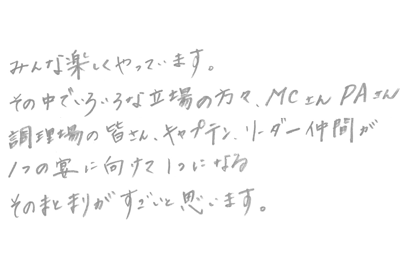 みんな楽しくやっています。
その中でいろいろな立場の方々、MCさんPAさん
調理場の皆さん、キャプテン、リーダー仲間が
1つの宴に向けて1つになる
そのまとまりがすごいと思います。